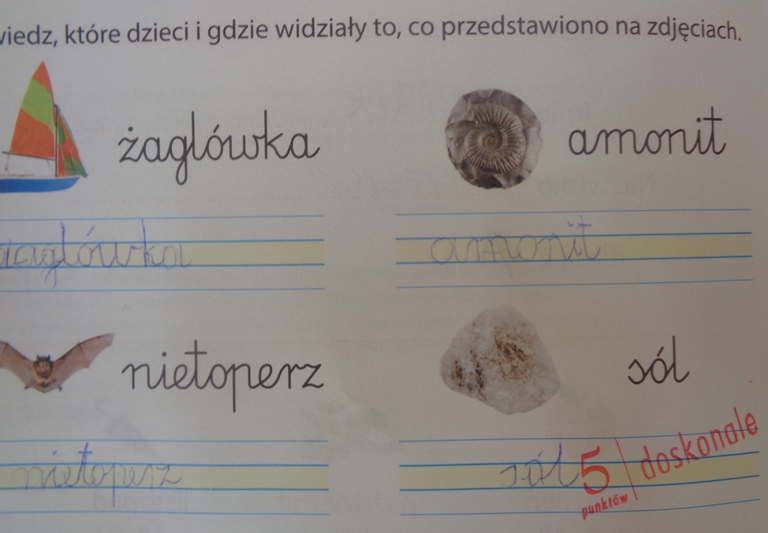 wiedz, które dzieci i gdzie widziały to, co przedstawiono na zdjęciach.
żaglówka
amonit
żaglówka
amonit
nietoperz
sól
nietoperz
sól
5 punktów | doskonale